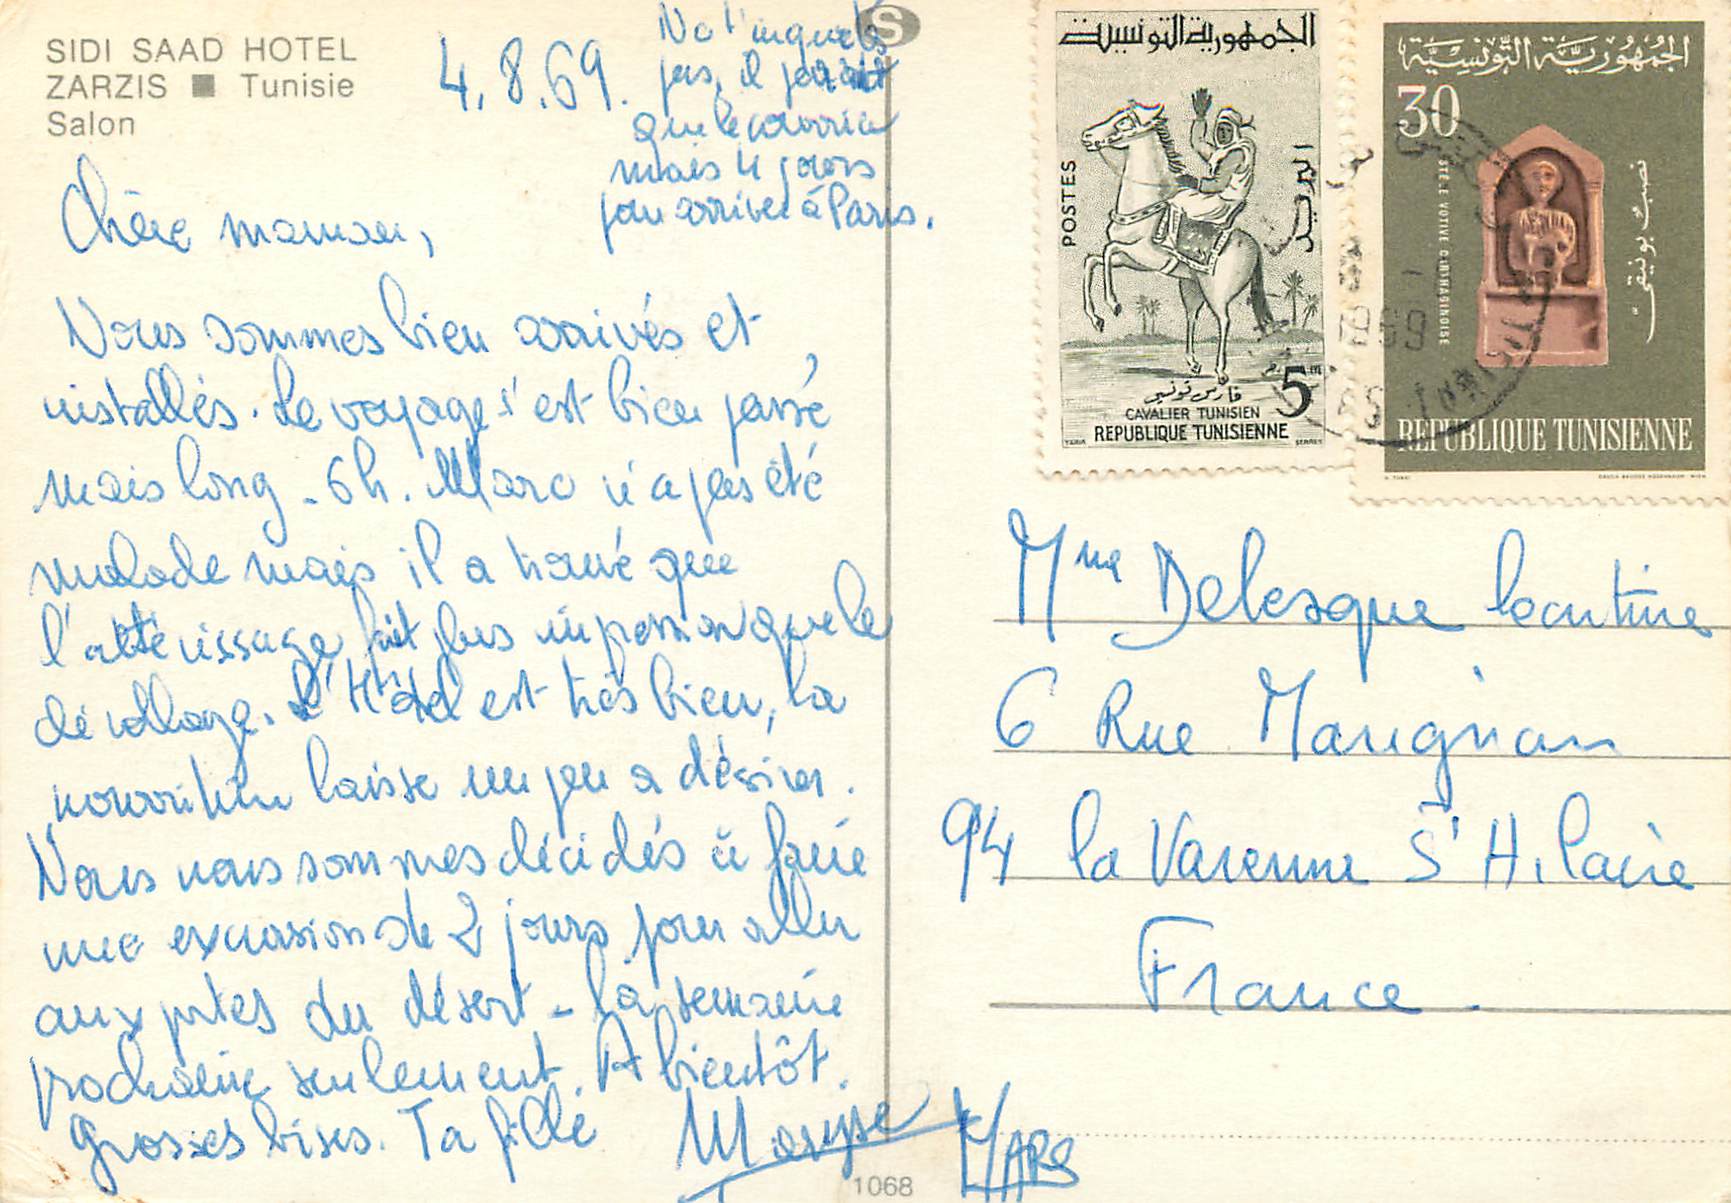 SIDI SAAD HOTEL
ZARZIS ■ Tunisie
Salon
4.8.69.
Ne t'inquète
pas, il paraît
que le courrier
mais 4 jours
pour arriver à Paris.
Chère maman,
Nous sommes bien arrivés et
installés. Le voyage s'est bien passé
mais long - 6h. Marc n'a pas été
malade mais il a trouvé que
l'attérissage fait plus impression que le
décollage. L'Hôtel est très bien, la
nourriture laisse un peu a désirer.
Nous nous sommes décidés à faire
une excursion de 2 jours pour aller
aux portes du désert - la semaine
prochaine seulement. A bientôt.
Grosses bises. Ta fille
Maryse
MARS
1068
S
الجمهورية التونسية
POSTES
البريد
فارس تونسي
5m
CAVALIER TUNISIEN
REPUBLIQUE TUNISIENNE
YAHIA
SERRES
الجمهورية التونسية
30
STELE VOTIVE CARTHAGINOISE
نصب بونيقي
REPUBLIQUE TUNISIENNE
1969
Mme Delesque
6 Rue Marignan
94 la Varenne St Hilaire
France.